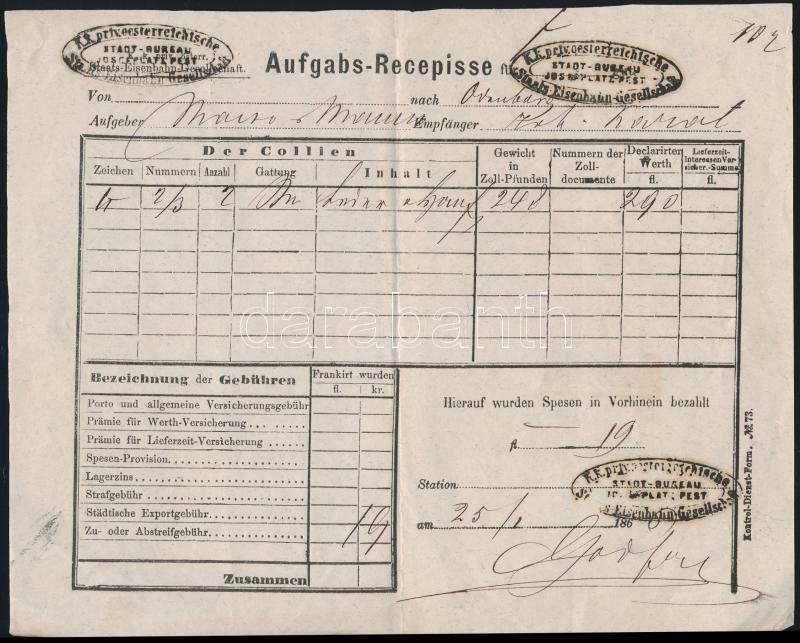 K.K. priv. oesterreichische
STADT-BUREAU
JOSEFPLATZ PEST
Staats-Eisenbahn-Gesellschaft
Staats-Eisenbahn-Gesellschaft.
Aufgabs-Recepisse für
K.K. priv. oesterreichische
STADT-BUREAU
JOSEFPLATZ PEST
Staats-Eisenbahn-Gesellschaft
Von nach Odenburg
Aufgeber Empfänger
Der Collien
Zeichen Nummern Anzahl Gattung Inhalt
Gewicht in Zoll-Pfunden
Nummern der Zoll-documente
Declarirten Werth fl.
Lieferzeit-Interessen Versicher.-Summe fl.
2/3 2 248 290
Bezeichnung der Gebühren
Frankirt wurden
fl. kr.
Porto und allgemeine Versicherungsgebühr
Prämie für Werth-Versicherung
Prämie für Lieferzeit-Versicherung
Spesen-Provision
Lagerzins
Strafgebühr
Städtische Exportgebühr
Zu- oder Abstreifgebühr
19
Zusammen
Hierauf wurden Spesen in Vorhinein bezahlt
fl. 19
Station
K.K. priv. oesterreichische
STADT-BUREAU
JOSEFPLATZ PEST
Staats-Eisenbahn-Gesellschaft
am 25/1 186
Kontrol-Dienst-Form. № 73.
darabanth